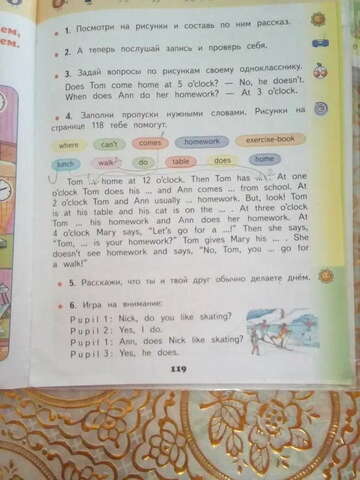 ем,
ем.
1. Посмотри на рисунки и составь по ним рассказ.
2. А теперь послушай запись и проверь себя.
3. Задай вопросы по рисункам своему однокласснику.
Does Tom come home at 5 o'clock? — No, he doesn't.
When does Ann do her homework? — At 3 o'clock.
4. Заполни пропуски нужными словами. Рисунки на
странице 118 тебе помогут.
where can't comes homework exercise-book
lunch walk do table does home
Tom ... home at 12 o'clock. Then Tom has ... . At one
o'clock Tom does his ... and Ann comes ... from school. At
2 o'clock Tom and Ann usually ... homework. But, look! Tom
is at his table and his cat is on the ... . At three o'clock
Tom ... his homework and Ann does her homework. At
4 o'clock Mary says, "Let's go for a ...!" Then she says,
"Tom, ... is your homework?" Tom gives Mary his ... . She
doesn't see homework and says, "No, Tom, you ... go for
a walk!"
5. Расскажи, что ты и твой друг обычно делаете днём.
6. Игра на внимание:
Pupil 1: Nick, do you like skating?
Pupil 2: Yes, I do.
Pupil 1: Ann, does Nick like skating?
Pupil 3: Yes, he does.
119